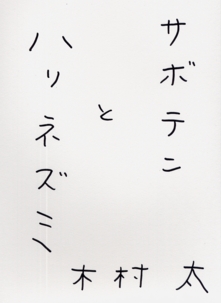 サボテン
と
ハリネズミ
木村 太